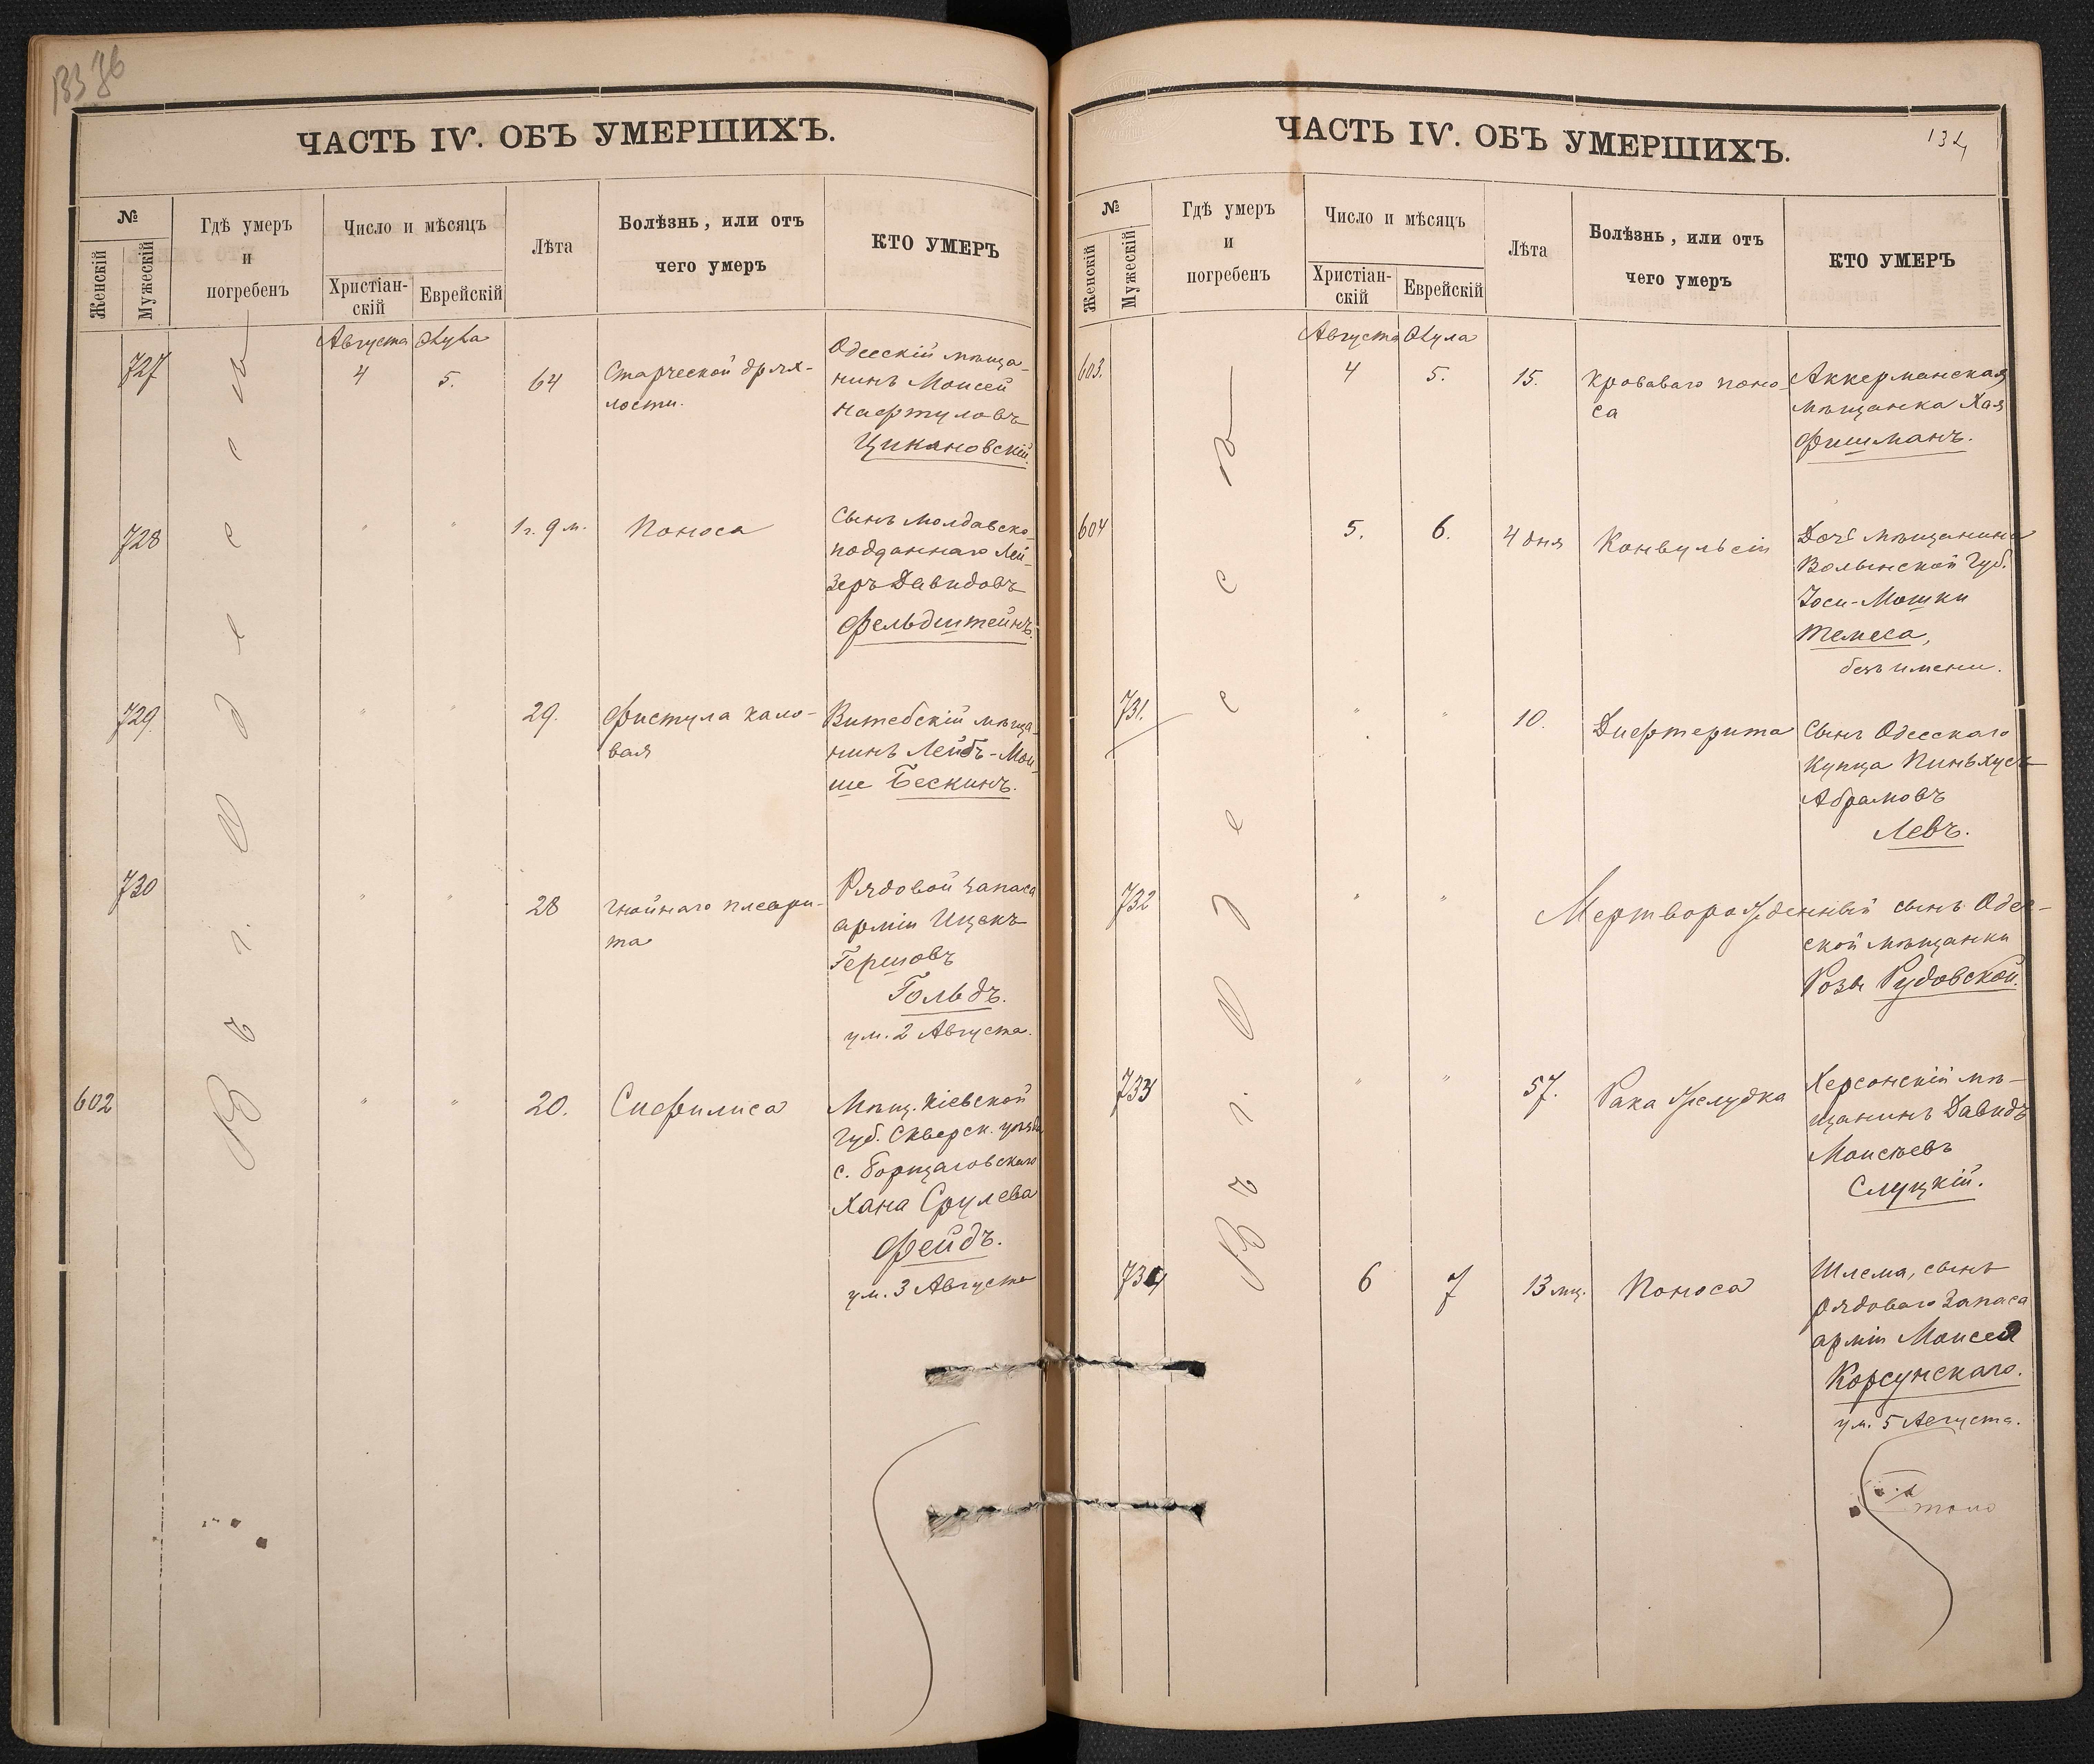 ЧАСТЬ IV. ОБЪ УМЕРШИХЪ.
№
Женскій
Мужескій
Гдѣ умеръ
и
погребенъ
Число и мѣсяцъ
Христіан-
скій
Еврейскій
Лѣта
Болѣзнь, или отъ
чего умеръ
КТО УМЕРЪ
Въ г. Одессѣ
Августа
727
4
5.
64
Старческой дрях-
лости.
Одесскій мѣща-
нинъ Моисей
Нафтуловъ
Цикановскій.
728
"
"
1 г. 9 м.
Поноса
Сынъ Молдавско-
подданнаго Лей-
зеръ Давидовъ
Фельдштейнъ.
729.
"
"
29.
Фистула кало-
вая
Витебскій мѣща-
нинъ Лейбъ-Мои-
ше Бескинъ.
730
"
"
28
Гнойнаго плеври-
та
Рядовой запаса
арміи Ицекъ
Гершовъ
Гольдъ.
ум. 2 Августа.
602
"
"
20.
Сифилиса
Мѣщ. Кіевской
губ. Скверск. уѣзда
с. Борщаговскаго
Хана Срулева
Фейдъ.
ум. 3 Августа
ЧАСТЬ IV. ОБЪ УМЕРШИХЪ.
134
№
Женскій
Мужескій
Гдѣ умеръ
и
погребенъ
Число и мѣсяцъ
Христіан-
скій
Еврейскій
Лѣта
Болѣзнь, или отъ
чего умеръ
КТО УМЕРЪ
Въ г. Одессѣ
Августа Элула
603.
4
5.
15.
Кроваваго поно-
са
Аккерманская
мѣщанка Хая
Фишманъ.
604
5.
6.
4 дня
Конвульсіи
Дочь мѣщанина
Волынской Губ.
Іоси-Мошки
Темеса,
безъ имени.
731.
"
"
10.
Дифтерита
Сынъ Одесскаго
Купца Пиньхусъ
Абрамовъ
Левъ.
732
"
"
Мертворожденный сынъ Одес-
ской мѣщанки
Розы Рудовской.
733
"
"
57.
Рака желудка
Херсонскій мѣ-
щанинъ Давидъ
Моисѣевъ
Слуцкій.
734
6
7
13 мц.
Поноса
Шлема, сынъ
рядоваго запаса
арміи Моисея
Корсунскаго.
ум. 5 Августа.